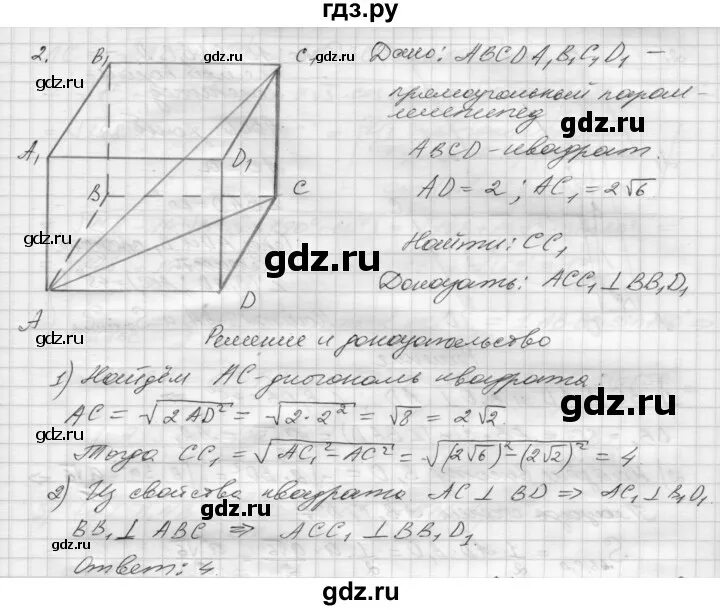 гдз.ру
2.
B₁
C₁
A₁
D₁
B
C
A
D
Дано: ABCDA₁B₁C₁D₁ –
прямоугольный парал-
лелепипед
gdz.ru
ABCD – квадрат.
AD = 2; AC₁ = 2√6.
gdz.ru
gdz.ru
Найти: CC₁
gdz.ru
gdz.ru
Доказать: ACC₁ ⊥ BB₁D₁
gdz.ru
Решение и доказательство
1) Найдём AC – диагональ квадрата:
AC = √2AD² = √2·2² = √8 = 2√2.
gdz.ru
gdz.ru
Тогда CC₁ = √AC₁² – AC² = √(2√6)² – (2√2)² = 4
2) Из свойства квадрата AC ⊥ BD ⇒ AC₁ ⊥ B₁D₁.
BB₁ ⊥ ABC ⇒ ACC₁ ⊥ BB₁D₁.
gdz.ru
gdz.ru
Ответ: 4.
gdz.ru